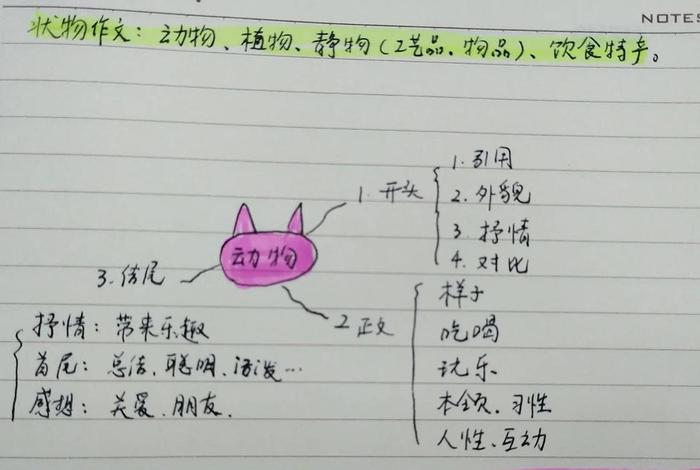 NOTES
状物作文：动物、植物、静物（工艺品、物品）、饮食特产。
动物
1. 开头
1. 引用
2. 外貌
3. 抒情
4. 对比
2 正文
样子
吃喝
玩乐
本领、习性
人性、互动
3. 结尾
抒情：带来乐趣
首尾：总结、聪明、活泼…
感想：关爱、朋友、